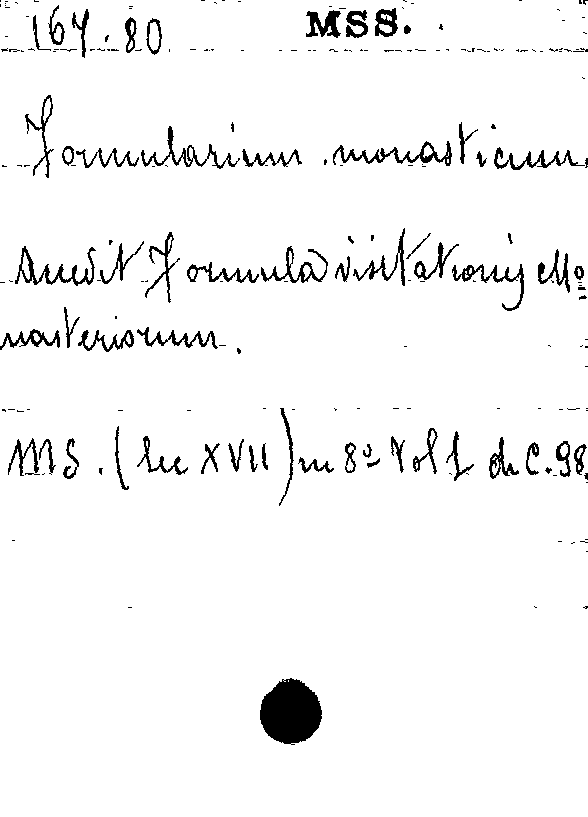 167.80 MSS.
Formularium monasticum
Accedit Formula visitationis Mo=
nasteriorum.
MS. (Sec XVII) in 8º Vol 1 di C. 98.